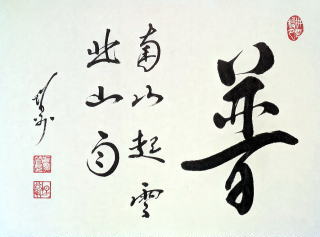 普
南山起雲
北山雨